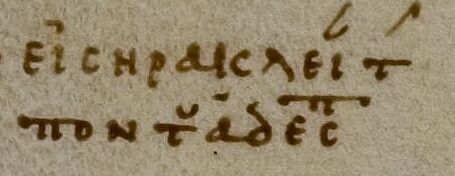 εἰς ηρακλείτ
πον τ ἀδεσπ